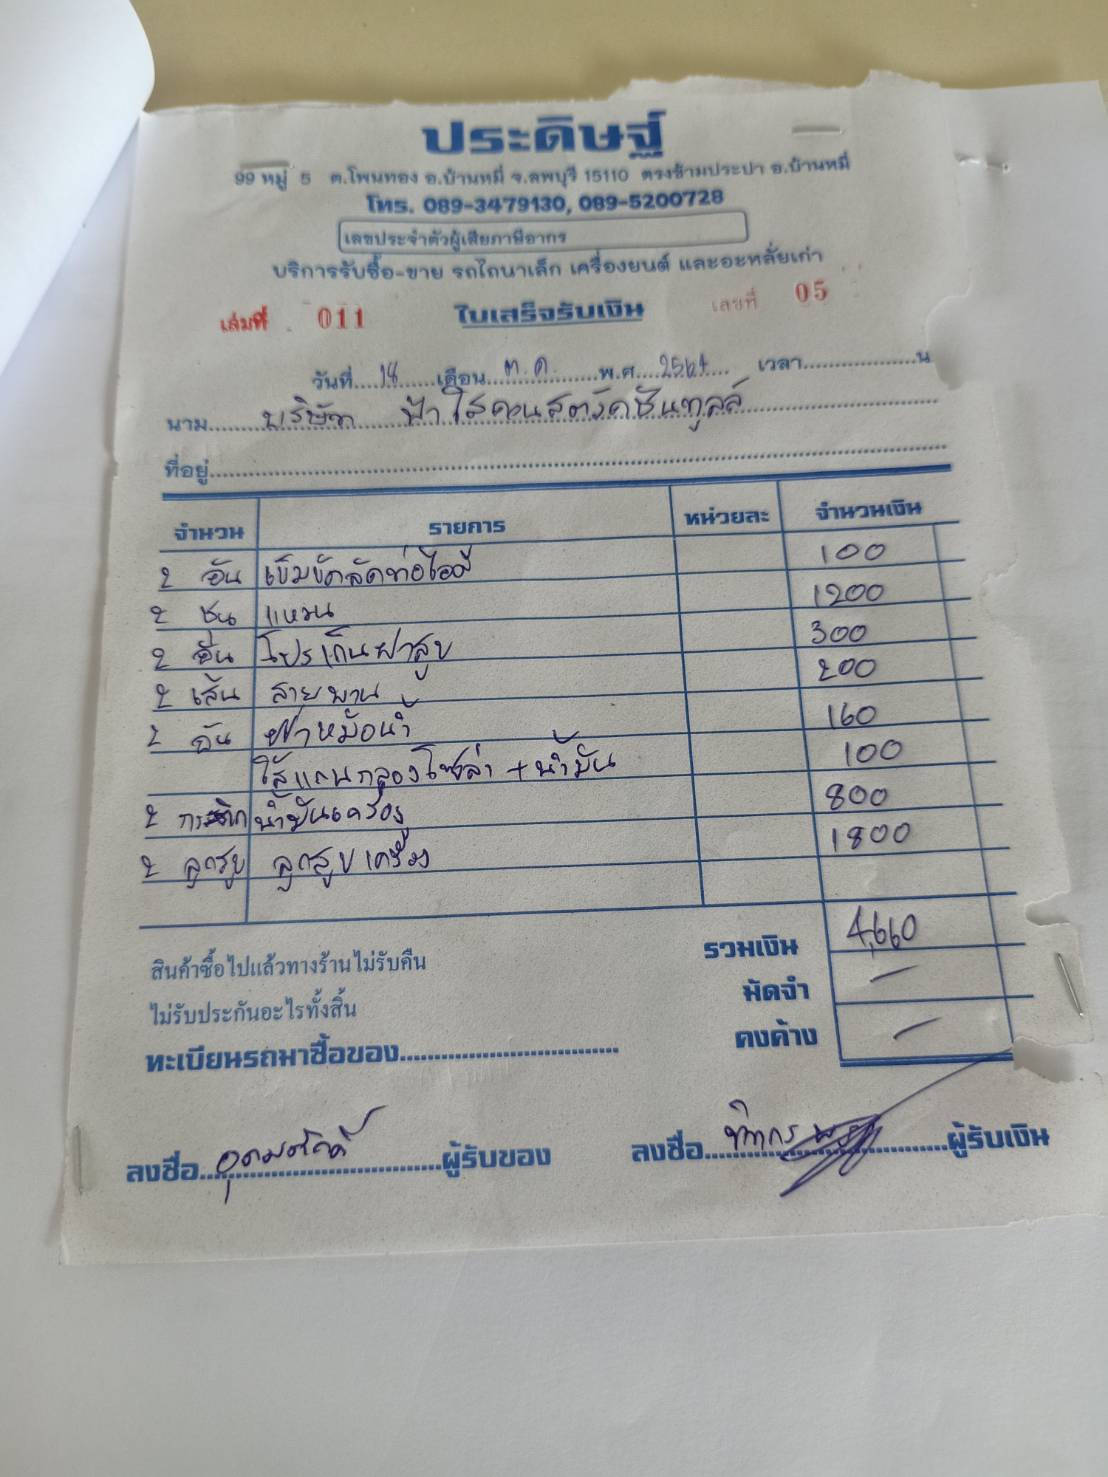 ประดิษฐ์
99 หมู่ 5 ต.โพนทอง อ.บ้านหมี่ จ.ลพบุรี 15110 ตรงข้ามประปา อ.บ้านหมี่
โทร. 089-3479130, 089-5200728
เลขประจำตัวผู้เสียภาษีอากร
บริการรับซื้อ-ขาย รถไถนาเล็ก เครื่องยนต์ และอะหลั่ยเก่า
เล่มที่ 011 ใบเสร็จรับเงิน เลขที่ 05
วันที่ 18 เดือน ต.ค. พ.ศ. 2564 เวลา น
นาม บริษัท ฟ้าใสคอนสตรัคชันทูลส์
ที่อยู่
จำนวน รายการ หน่วยละ จำนวนเงิน
2 อัน เข็มขัดลัดท่อไอดี 100
2 ชุน แหวน 1200
2 อื่น ฝาสูบ 300
2 เส้น สายพาน 200
2 อัน ฝาหม้อน้ำ 160
กลองโซล่า + น้ำมัน 100
2 น้ำมันเครื่อง 800
2 ลูกสูบ ลูกสูบเครื่อง 1800
รวมเงิน 4,660
สินค้าซื้อไปแล้วทางร้านไม่รับคืน
มัดจำ -
ไม่รับประกันอะไรทั้งสิ้น
คงค้าง -
ทะเบียนรถมาซื้อของ
ลงชื่อ อุดมศักดิ์ ผู้รับของ ลงชื่อ ผู้รับเงิน